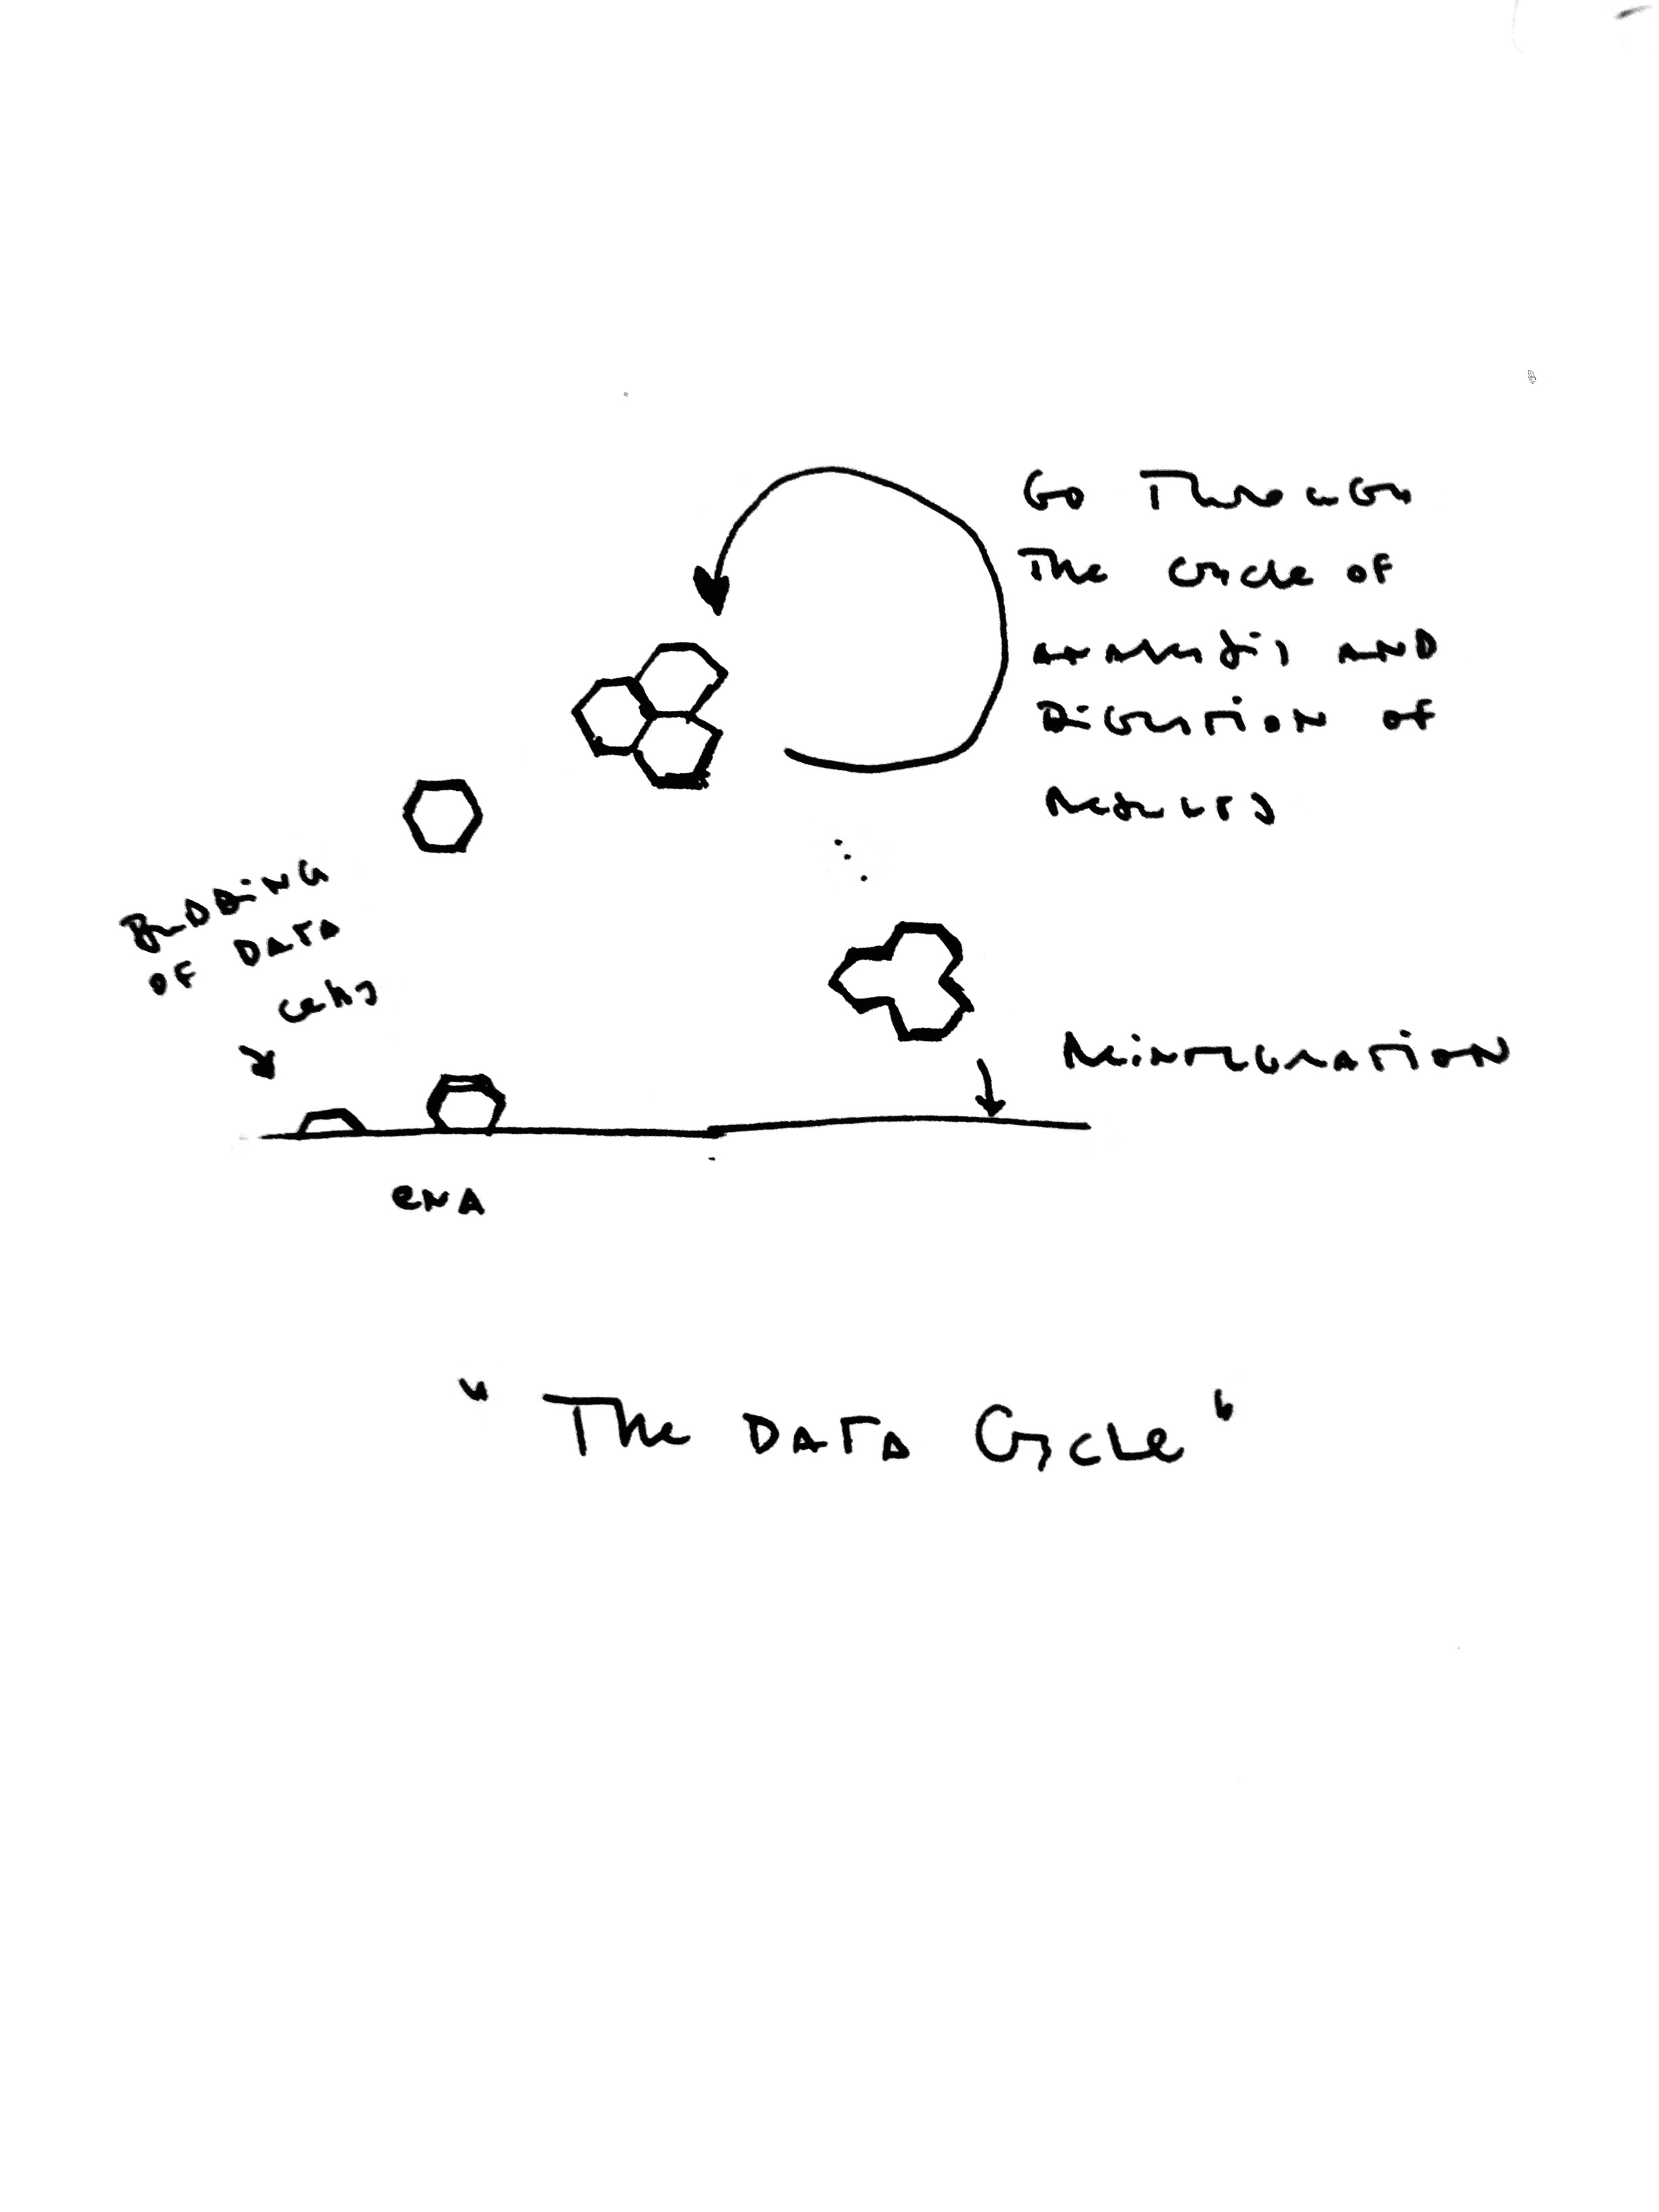 Go Through
The cycle of
analysis AND
Digestion of
results
BuDDiNG
OF DATA
cells
Reintegration
eNA
"The DATA Cycle"